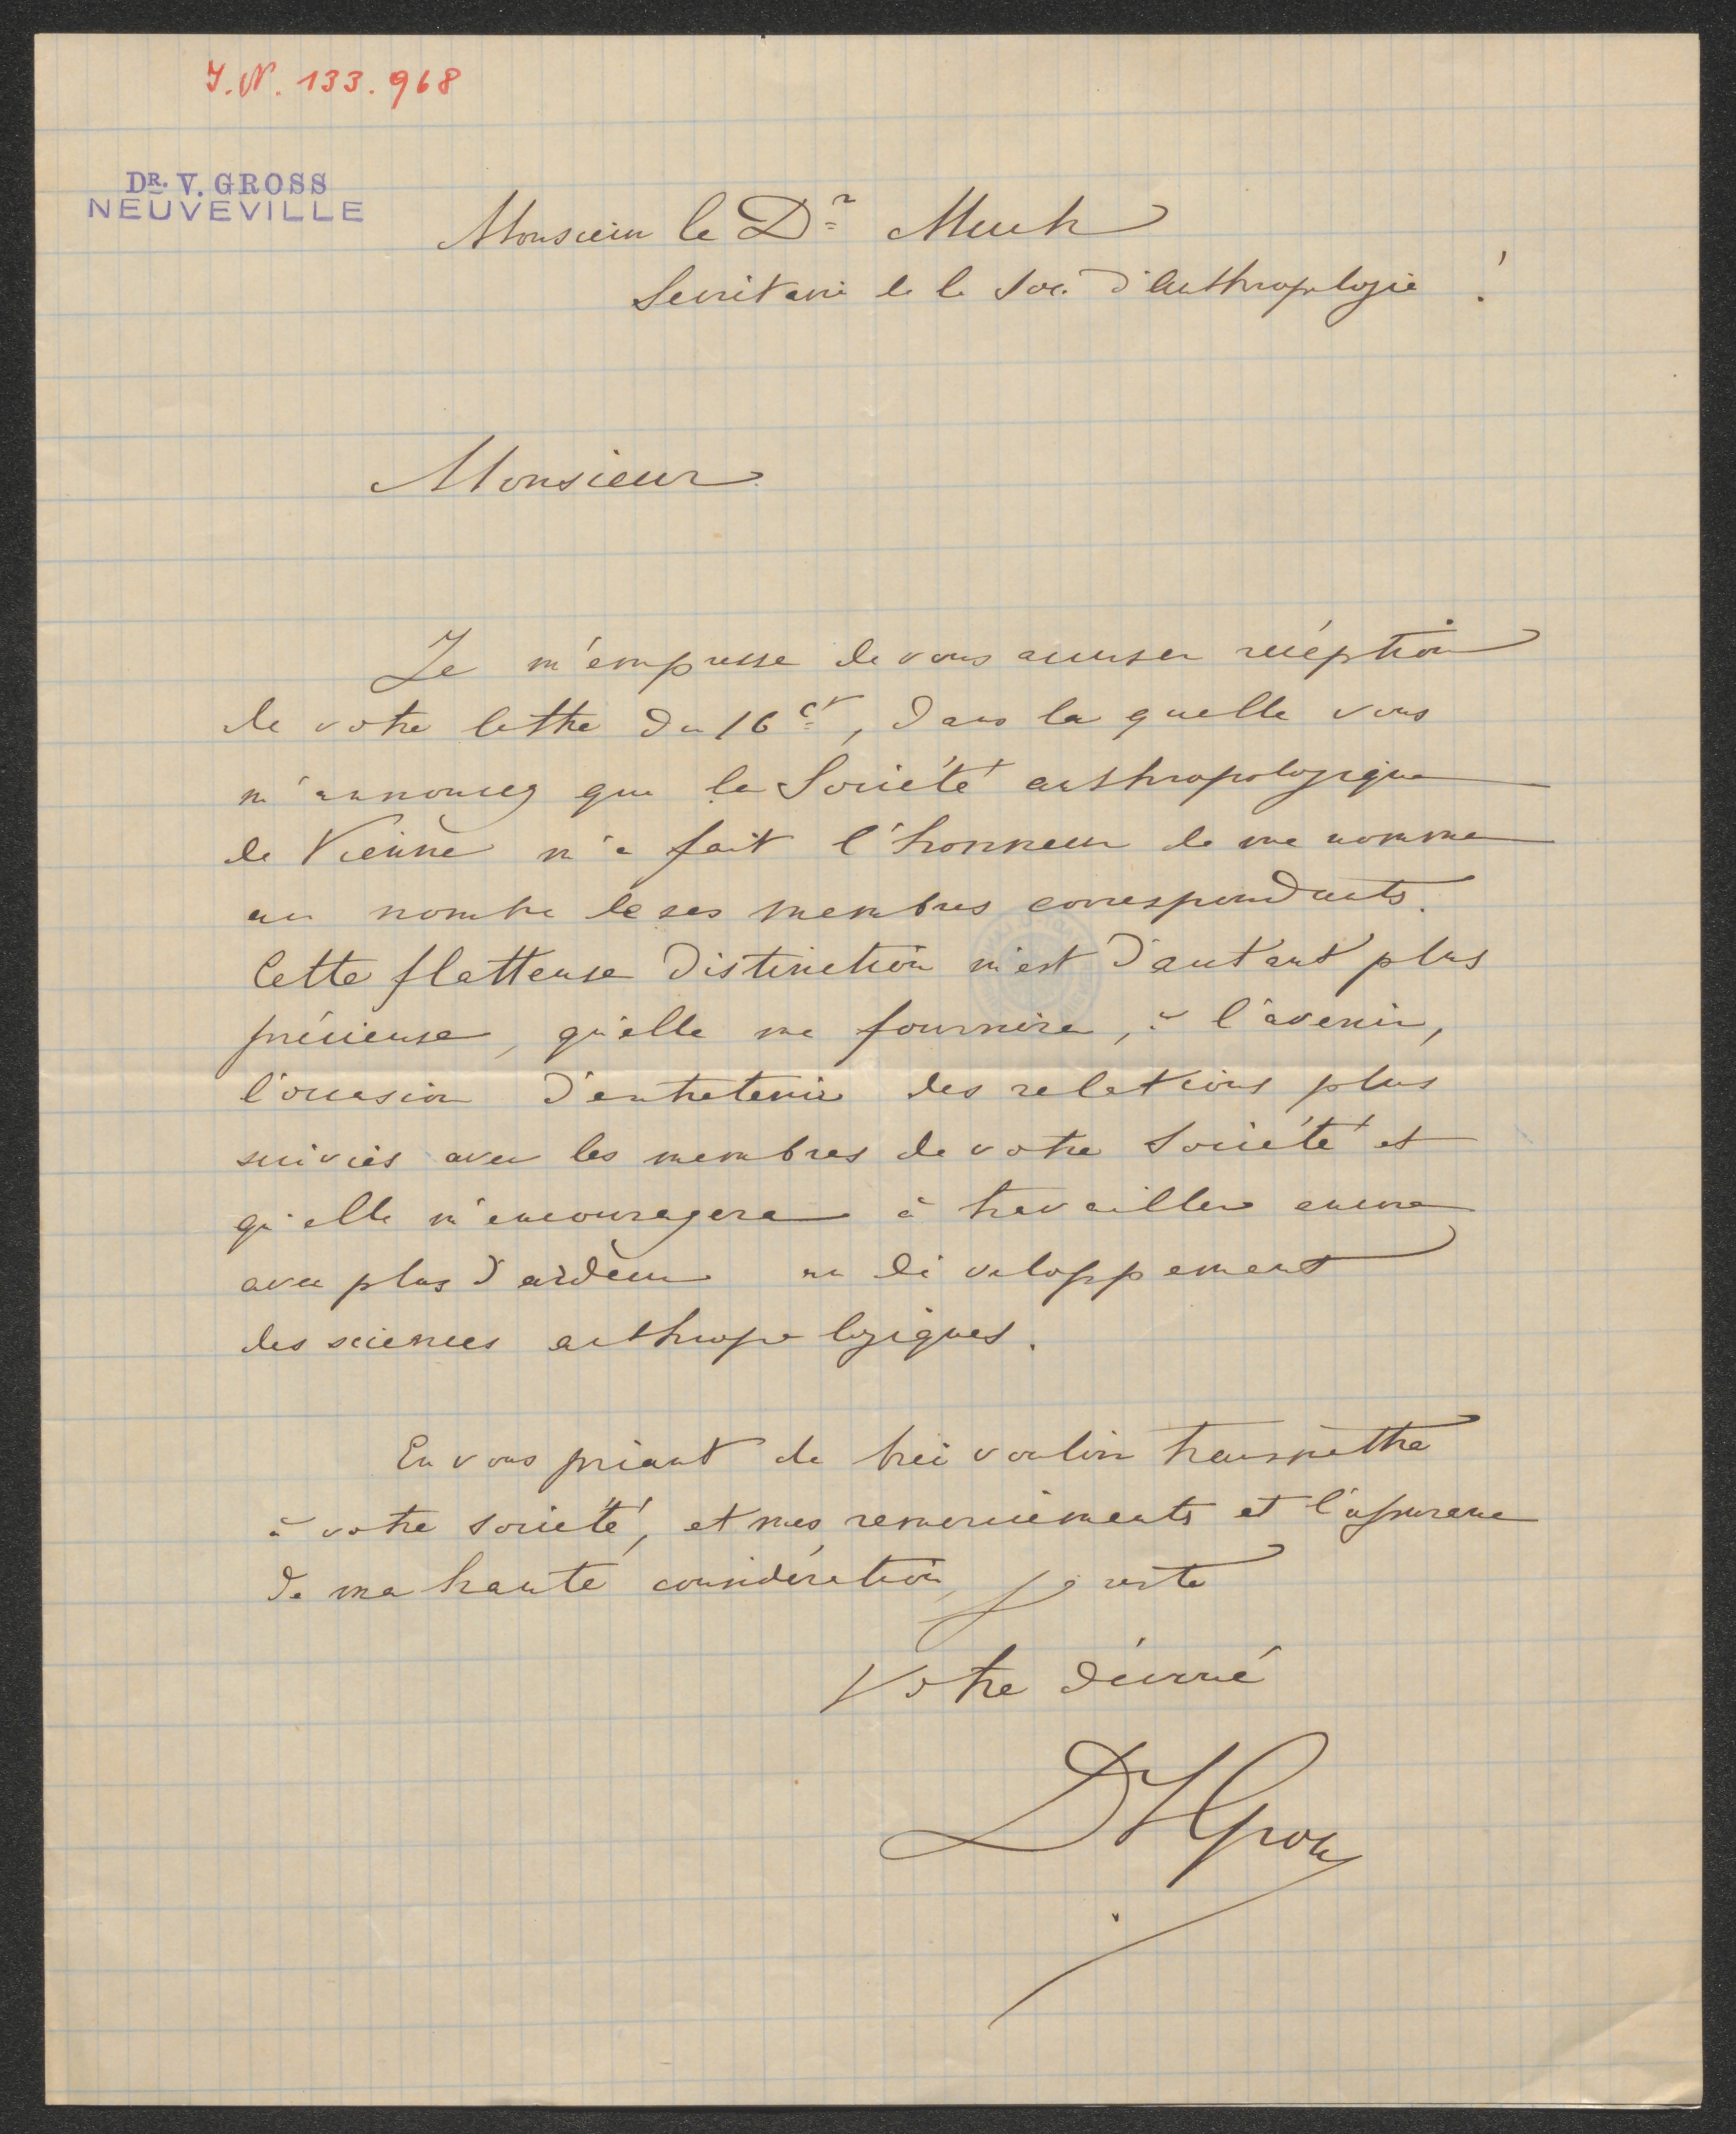 J.N. 133.968
DR. V. GROSS
NEUVEVILLE
Monsieur le Dr Much
Secrétaire de la Soc. d'anthropologie !
Monsieur
Je m'empresse de vous accuser réception
de votre lettre du 16 ct, dans la quelle vous
m'annoncez que la Société anthropologique
de Vienne m'a fait l'honneur de me nommer
au nombre de ses membres correspondants.
Cette flatteuse distinction m'est d'autant plus
précieuse, qu'elle me fournira, à l'avenir,
l'occasion d'entretenir des relations plus
suivies avec les membres de votre Société et
qu'elle m'encouragera à travailler encore
avec plus d'ardeur au développement
des sciences anthropologiques.
En vous priant de bien vouloir transmettre
à votre société, et mes remerciements et l'assurance
de ma haute considération, je reste
Votre dévoué
Dr V Gross